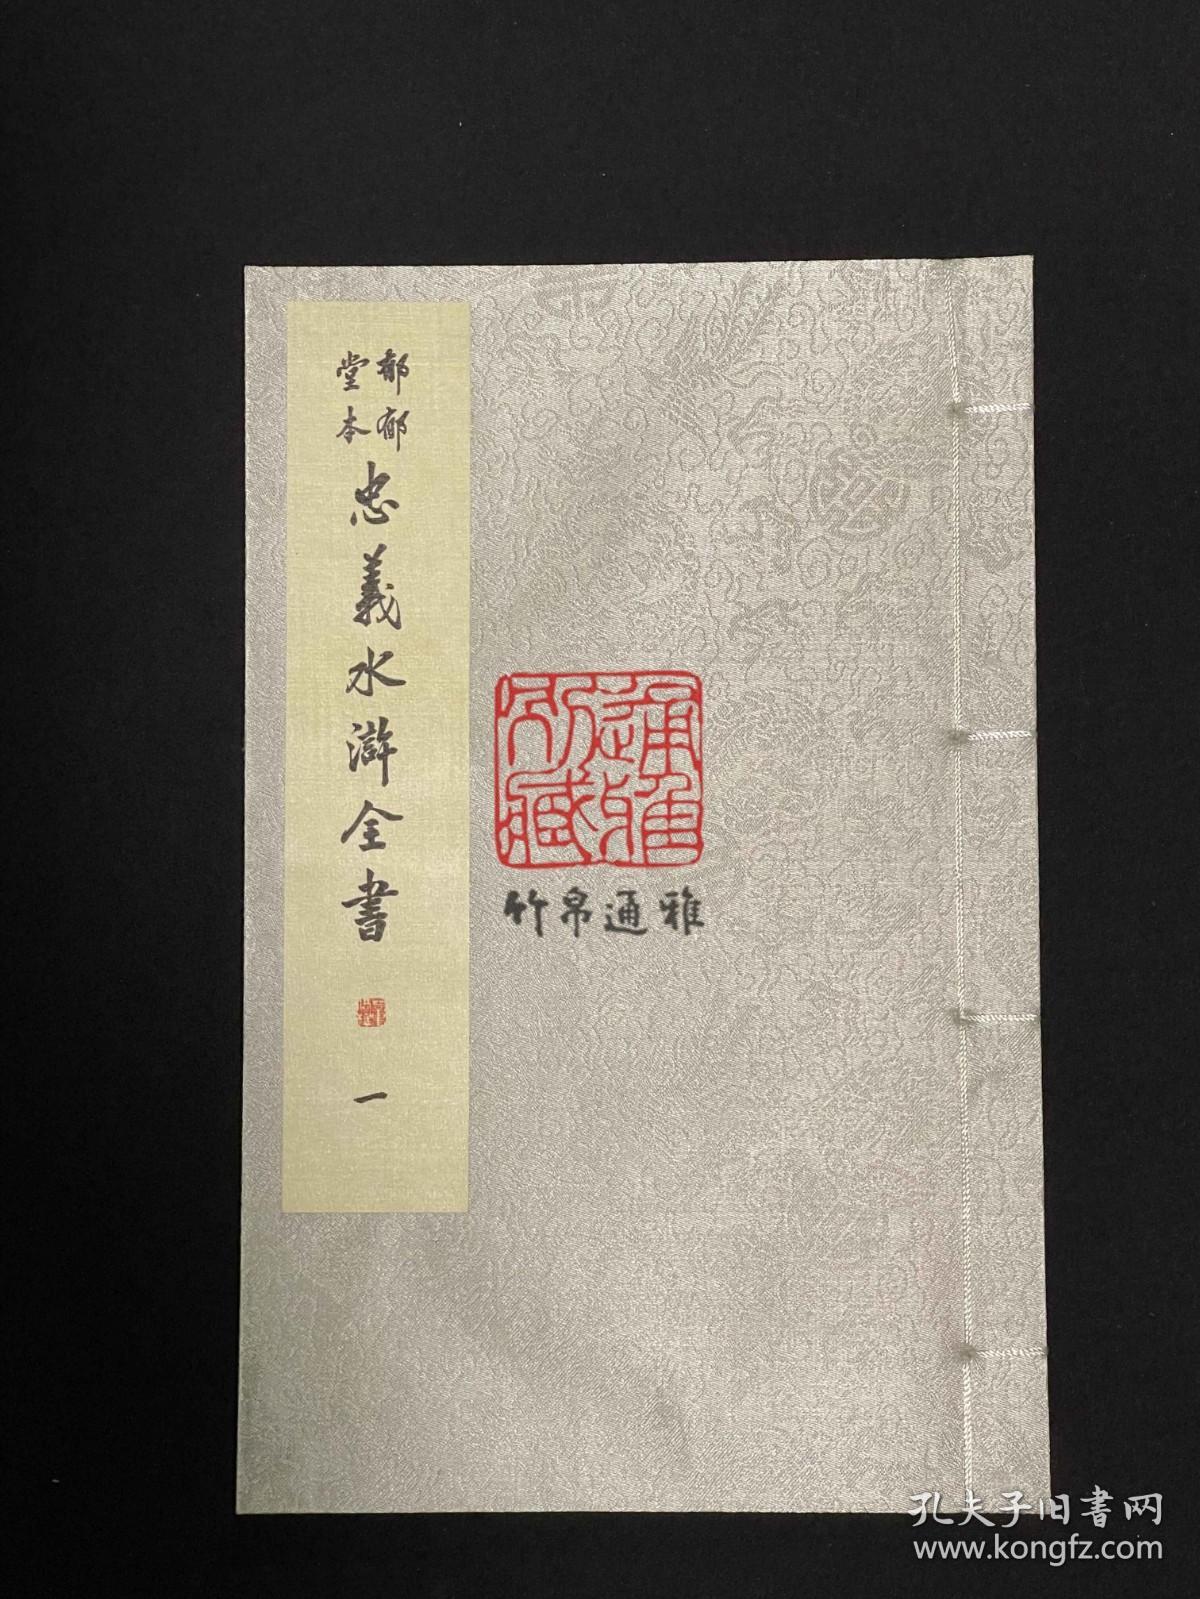 郁郁
堂本
忠義水滸全書
一
通雅
所藏
竹帛通雅
孔夫子旧书网
www.kongfz.com